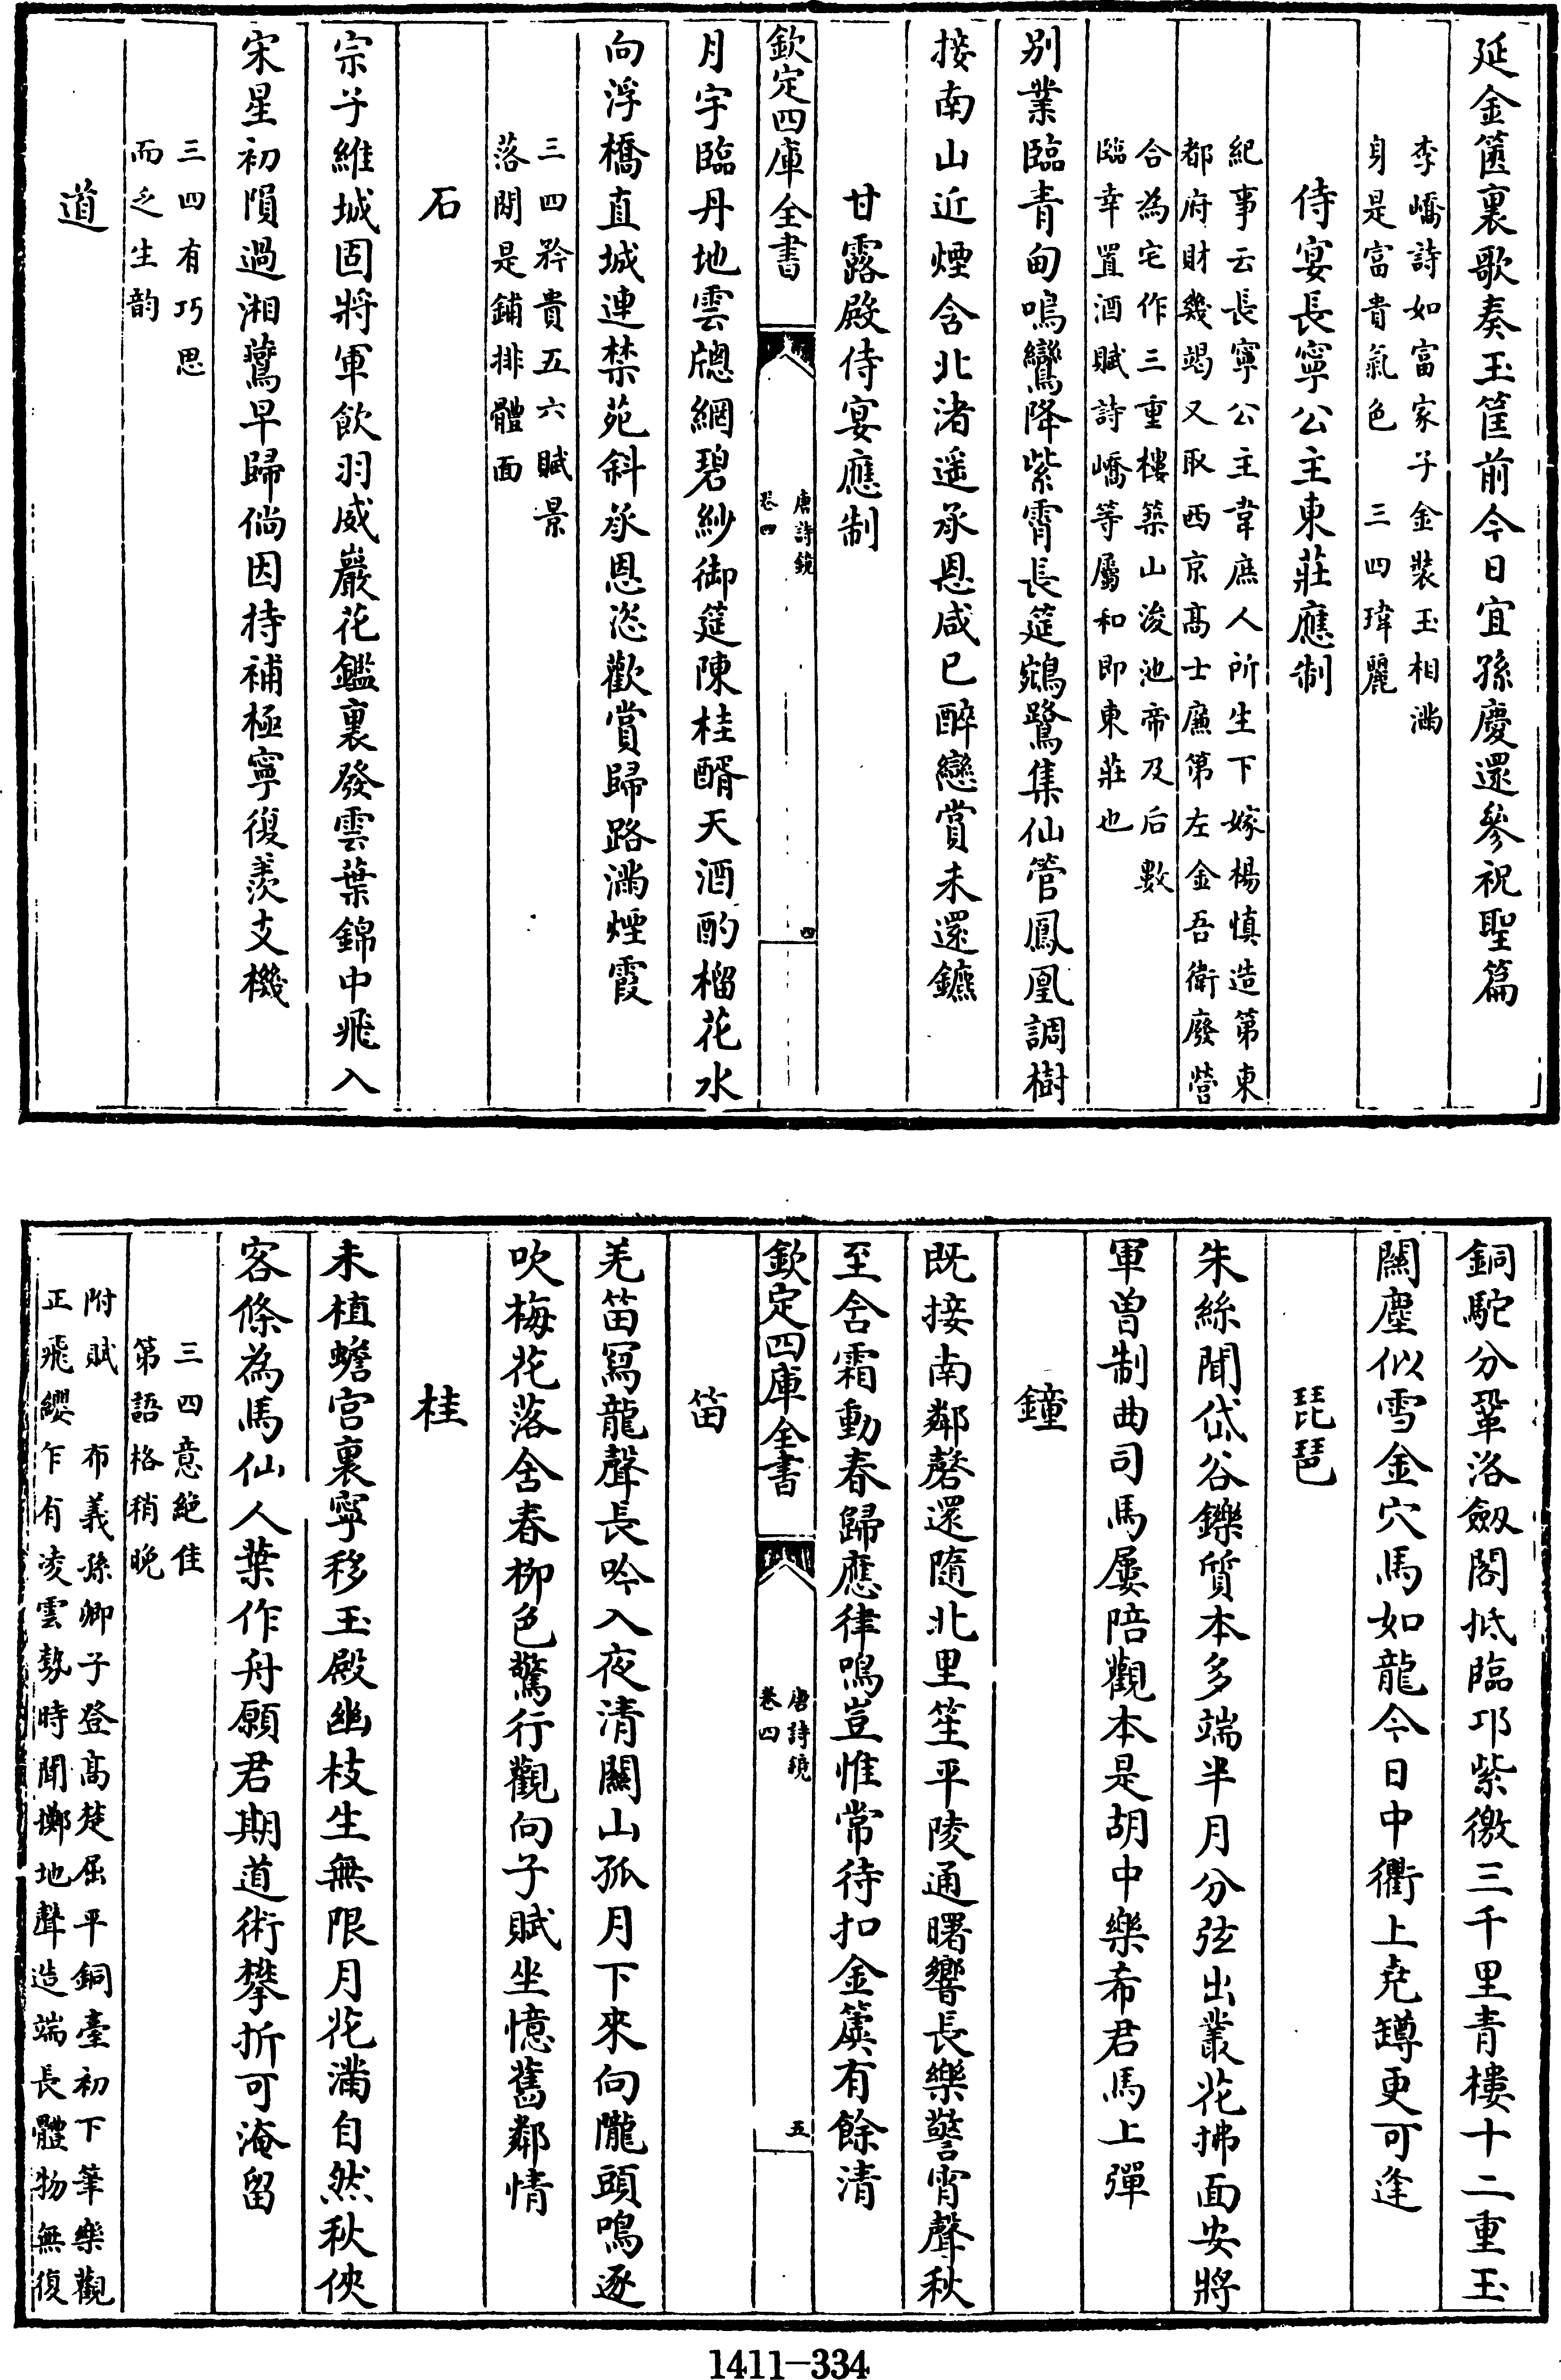 延金篋裏歌奏玉筐前今日宜孫慶還參祝聖篇
李嶠詩如富家子金裝玉相滿
身是富貴氣色 三四瑋麗
侍宴長寧公主東莊應制
紀事云長寧公主韋庶人所生下嫁楊慎造第東
都府財幾竭又取西京髙士廉第左金吾衛廢營
合為宅作三重樓築山浚池帝及后數
臨幸置酒賦詩嶠等屬和即東莊也
别業臨青甸鳴鑾降紫霄長筵鵷鷺集仙管鳳凰調樹
接南山近煙含北渚遥承恩咸已醉戀賞未還鑣
甘露殿侍宴應制
欽定四庫全書
唐詩鏡
卷四
四
月宇臨丹地雲牕網碧紗御筵陳桂醑天酒酌榴花水
向浮橋直城連禁苑斜承恩恣歡賞歸路滿煙霞
三四矜貴五六賦景
落閒是鋪排體面
石
宗子維城固將軍飲羽威巖花鑑裏發雲葉錦中飛入
宋星初隕過湘驚早歸倘因持補極寧復羨支機
三四有巧思
而乏生韵
道
銅駝分鞏洛劔閣抵臨邛紫徼三千里青樓十二重玉
關塵似雪金穴馬如龍今日中衢上堯罇更可逢
琵琶
朱絲聞岱谷鑠質本多端半月分弦出叢花拂面安將
軍曽制曲司馬屢陪觀本是胡中樂希君馬上彈
鐘
既接南鄰磬還隨北里笙平陵通曙響長樂警宵聲秋
至含霜動春歸應律鳴豈惟常待扣金簴有餘清
欽定四庫全書
唐詩鏡
卷四
五
笛
羌笛冩龍聲長吟入夜清關山孤月下來向隴頭鳴逐
吹梅花落含春柳色驚行觀向子賦坐憶舊鄰情
桂
未植蟾宫裏寧移玉殿幽枝生無限月花滿自然秋俠
客條為馬仙人葉作舟願君期道術攀折可淹留
三四意絶佳
第語格稍晚
附賦 布義孫卿子登髙楚屈平銅臺初下筆樂觀
正飛纓乍有凌雲勢時聞擲地聲造端長體物無復
1411-334